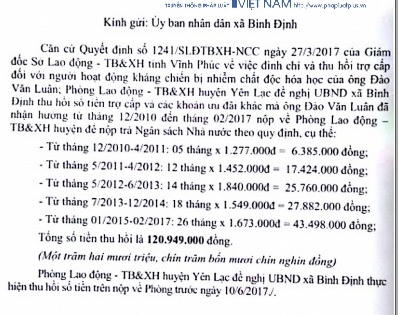 TRUYỀN THÔNG PHÁP LUẬT VIỆT NAM http://www.phapluatplus.vn
Kính gửi: Ủy ban nhân dân xã Bình Định
Căn cứ Quyết định số 1241/SLĐTBXH-NCC ngày 27/3/2017 của Giám
đốc Sở Lao động - TB&XH tỉnh Vĩnh Phúc về việc đình chỉ và thu hồi trợ cấp
đối với người hoạt động kháng chiến bị nhiễm chất độc hóa học của ông Đào
Văn Luân; Phòng Lao động - TB&XH huyện Yên Lạc đề nghị UBND xã Bình
Định thu hồi số tiền trợ cấp và các khoản ưu đãi khác mà ông Đào Văn Luân đã
nhận hưởng từ tháng 12/2010 đến tháng 02/2017 nộp về Phòng Lao động –
TB&XH huyện để nộp trả Ngân sách Nhà nước theo quy định, cụ thể:
- Từ tháng 12/2010-4/2011: 05 tháng x 1.277.000đ = 6.385.000 đồng;
- Từ tháng 5/2011-4/2012: 12 tháng x 1.452.000đ = 17.424.000 đồng;
- Từ tháng 5/2012-6/2013: 14 tháng x 1.840.000đ = 25.760.000 đồng;
- Từ tháng 7/2013-12/2014: 18 tháng x 1.549.000đ = 27.882.000 đồng;
- Từ tháng 01/2015-02/2017: 26 tháng x 1.673.000đ = 43.498.000 đồng;
Tổng số tiền thu hồi là 120.949.000 đồng.
(Một trăm hai mươi triệu, chín trăm bốn mươi chín nghìn đồng)
Phòng Lao động - TB&XH huyện Yên Lạc đề nghị UBND xã Bình Định thực
hiện thu hồi số tiền trên nộp về Phòng trước ngày 10/6/2017./.